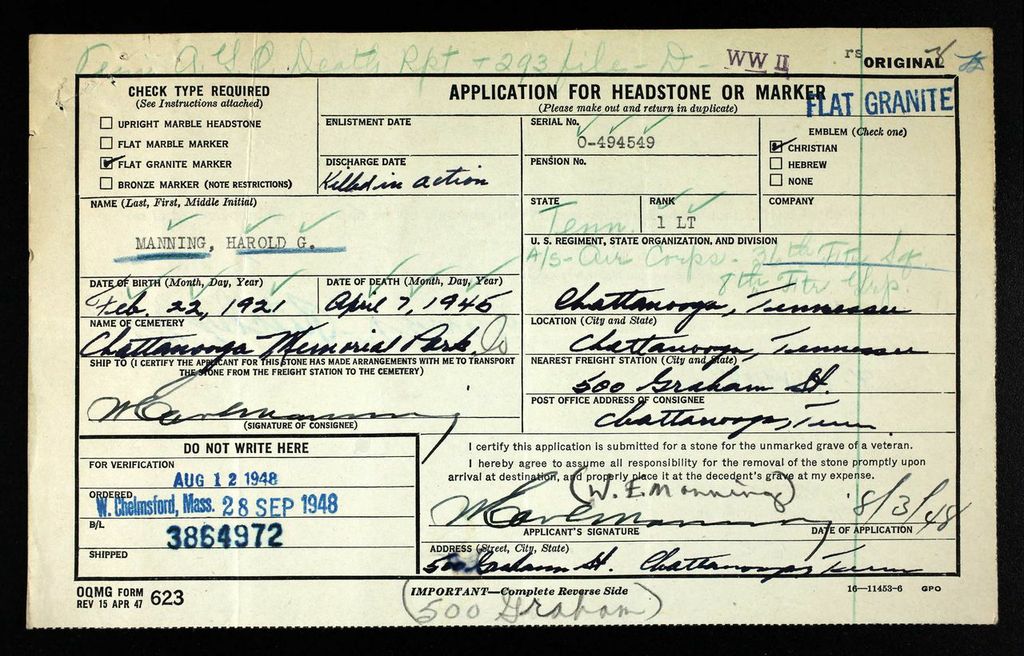 Tenn A.G.O. Death Rpt + 293 file - D - WW II
ORIGINAL
CHECK TYPE REQUIRED
(See Instructions attached)
UPRIGHT MARBLE HEADSTONE
FLAT MARBLE MARKER
FLAT GRANITE MARKER
BRONZE MARKER (NOTE RESTRICTIONS)
APPLICATION FOR HEADSTONE OR MARKER
(Please make out and return in duplicate)
FLAT GRANITE
ENLISTMENT DATE
DISCHARGE DATE
Killed in action
SERIAL No.
O-494549
PENSION No.
EMBLEM (Check one)
CHRISTIAN
HEBREW
NONE
NAME (Last, First, Middle Initial)
MANNING, HAROLD G.
STATE
Tenn.
RANK
1 LT
COMPANY
U. S. REGIMENT, STATE ORGANIZATION, AND DIVISION
A/S - Air Corps - Ftr Sq.
8th Ftr Grp.
DATE OF BIRTH (Month, Day, Year)
Feb. 22, 1921
DATE OF DEATH (Month, Day, Year)
April 7, 1945
Chattanooga, Tennessee
NAME OF CEMETERY
Chattanooga Memorial Park,
LOCATION (City and State)
Chattanooga, Tennessee
SHIP TO (I CERTIFY THE APPLICANT FOR THIS STONE HAS MADE ARRANGEMENTS WITH ME TO TRANSPORT
THE STONE FROM THE FREIGHT STATION TO THE CEMETERY)
NEAREST FREIGHT STATION (City and State)
500 Graham St.
(SIGNATURE OF CONSIGNEE)
POST OFFICE ADDRESS OF CONSIGNEE
Chattanooga, Tenn
DO NOT WRITE HERE
FOR VERIFICATION
AUG 12 1948
ORDERED
W. Chelmsford, Mass. 28 SEP 1948
B/L
3864972
SHIPPED
I certify this application is submitted for a stone for the unmarked grave of a veteran.
I hereby agree to assume all responsibility for the removal of the stone promptly upon
arrival at destination, and properly place it at the decedent's grave at my expense.
(W. E. Manning)
8/3/48
APPLICANT'S SIGNATURE
DATE OF APPLICATION
ADDRESS (Street, City, State)
500 Graham St. Chattanooga Tenn
OQMG FORM 623
REV 15 APR 47
IMPORTANT—Complete Reverse Side
16—11453-6 GPO
(500 Graham)